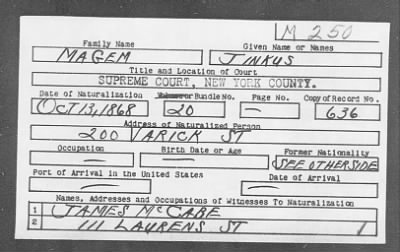 M 250
Family Name Given Name or Names
MAGEM JINKUS
Title and Location of Court
SUPREME COURT, NEW YORK COUNTY.
Date of Naturalization Volume or Bundle No. Page No. Copy of Record No.
OCT 13, 1868 20 — 636
Address of Naturalized Person
200 VARICK ST
Occupation Birth Date or Age Former Nationality
— — SEE OTHERSIDE
Port of Arrival in the United States Date of Arrival
— —
Names, Addresses and Occupations of Witnesses To Naturalization
1 JAMES McCABE
2 111 LAURENS ST 1